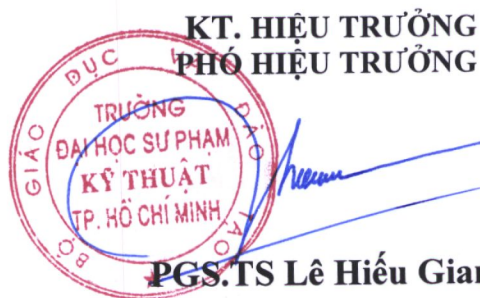 KT. HIỆU TRƯỞNG
PHÓ HIỆU TRƯỞNG
BỘ GIÁO DỤC VÀ ĐÀO TẠO
TRƯỜNG
ĐẠI HỌC SƯ PHẠM
KỸ THUẬT
TP. HỒ CHÍ MINH
PGS.TS Lê Hiếu Gian